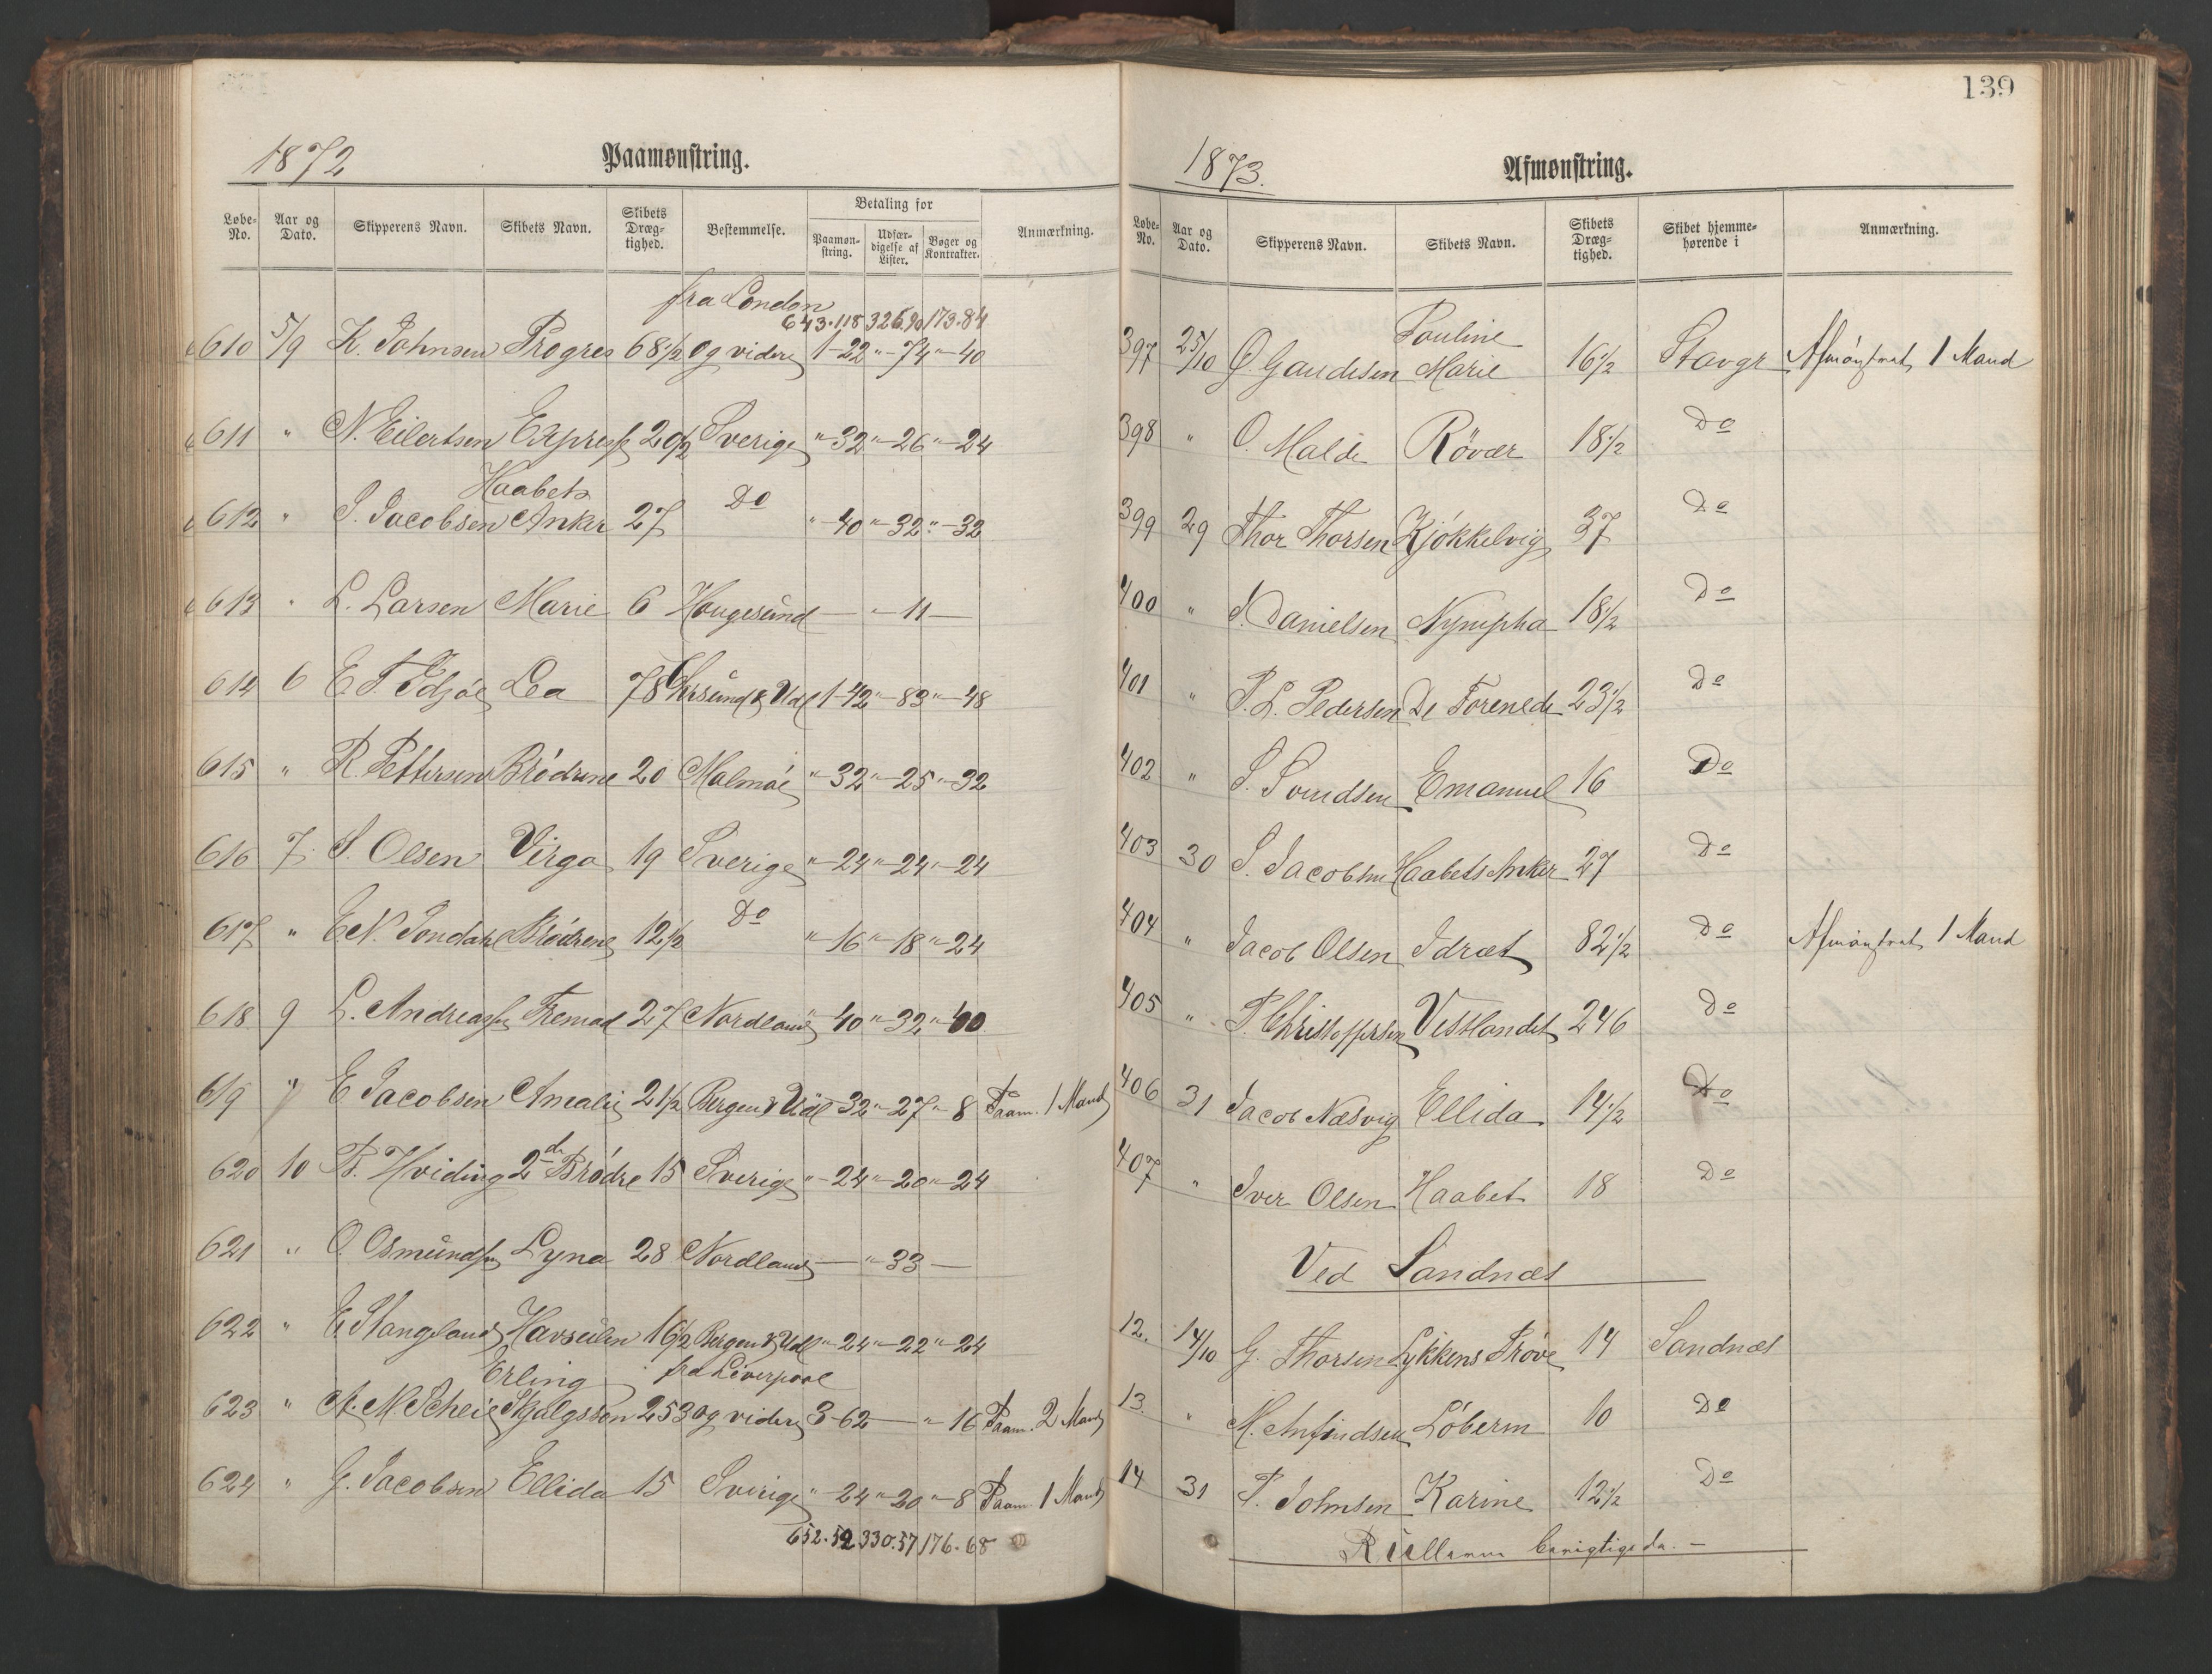 1872 Paamønstring.
Løbe-No. Aar og Dato. Skipperens Navn. Skibets Navn. Skibets Dræg-tighed. Bestemmelse. Betaling for Paamøn-string. Udfær-digelse af Lister. Bøger og Kontrakter. Anmærkning.
fra London
643.118 326.90 173.84
610 5/9 K. Johnsen Progres 68 1/2 og videre 1-22 "-74 "-40
611 " N. Eilertsen Express 20 1/2 Sverige "-32 "-26 "-24
Haabets
612 " S. Jacobsen Anker 27 Do "-40 "-32 "-32
613 " L. Larsen Marie 6 Haugesund — "-11 —
614 6 E. T. Lea 78 & Udl 1-42 "-83 "-48
615 " R. Pettersen Brødrene 20 Malmöe "-32 "-25 "-32
616 7 S. Olsen Virgo 19 Sverige "-24 "-24 "-24
617 " E N. Brødrene 12 1/2 Do "-16 "-18 "-24
618 9 L. Andreassen Fremad 27 Nordland "-40 "-32 "-
619 " E Jacobsen Amalie 21 1/2 Bergen & Udl "-32 "-27 "-8 Paam. 1 Mand
620 10 B. Hviding 2de Brødre 15 Sverige "-24 "-20 "-24
621 " O. Osmundsen Lyna 28 Nordland — "-33 —
622 " E. Stangeland Havseilen 16 1/2 Bergen & Udl "-24 "-22 "-24
Erling fra Liverpool
623 " A. N. Scheie Skjalgssøn 253 og videre 3-62 — "-16 Paam. 2 Mand
624 " G. Jacobsen Ellida 15 Sverige "-24 "-20 "-8 Paam. 1 Mand
652.52 330.57 176.68
139
1873. Afmønstring.
Løbe-No. Aar og Dato. Skipperens Navn. Skibets Navn. Skibets Dræg-tighed. Skibet hjemme-hørende i Anmærkning.
Pauline
397 25/10 O. Gaudesen Marie 16 1/2 Stavgr Afmönstret 1 Mand
398 " O. Malde Røvær 18 1/2 Do
399 29 Thor Thorsen Kjøkkelvig 37 Do
400 " J. Danielsen Nympha 18 1/2 Do
401 " P. L. Pedersen De Forenede 23 1/2 Do
402 " S. Svendsen Emanuel 16 Do
403 30 S. Jacobsen Haabets Anker 27 Do
404 " Jacob Olsen Idræt 82 1/2 Do Afmönstret 1 Mand
405 " P. Christoffersen Vestlandet 246 Do
406 31 Jacob Næsvig Ellida 14 1/2 Do
407 " Iver Olsen Haabet 18 Do
Ved Sandnæs
12. 14/10 G. Thorsen Lykkens Prøve 14 Sandnæs
13. " M. Anfindsen Löberen 10 Do
14 31 P. Johnsen Karine 12 1/2 Do
Rullerne berigtigede. —